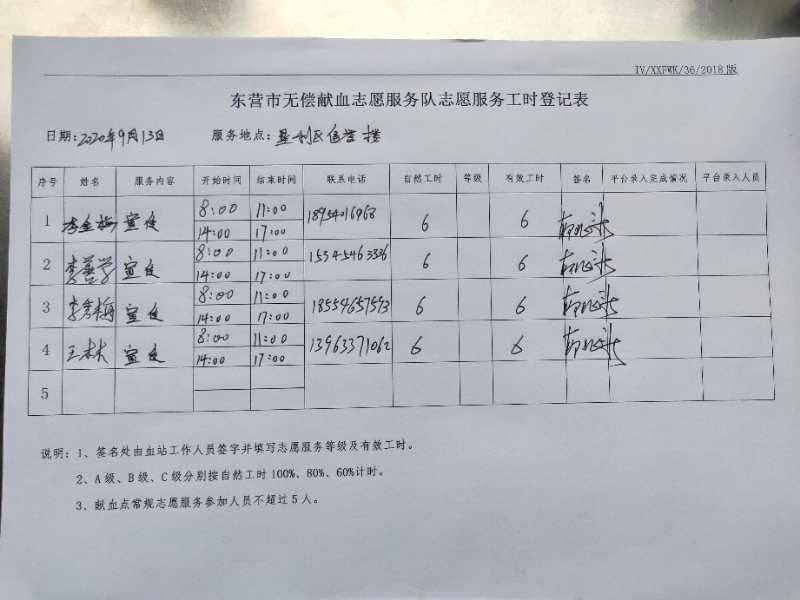 IV/XXFWK/36/2018版
东营市无偿献血志愿服务队志愿服务工时登记表
日期：2020年9月13日 服务地点：垦利区信誉楼
序号 姓名 服务内容 开始时间 结束时间 联系电话 自然工时 等级 有效工时 签名 平台录入完成情况 平台录入人员
1 李金梅 宣传 8:00 11:00 18954016968 6 6
14:00 17:00
2 李善学 宣传 8:00 11:00 6 6
14:00 17:00
3 李秀梅 宣传 8:00 11:00 18554657573 6 6
14:00 17:00
4 王林 宣传 8:00 11:00 13963371062 6 6
14:00 17:00
5
说明：1、签名处由血站工作人员签字并填写志愿服务等级及有效工时。
2、A级、B级、C级分别按自然工时100%、80%、60%计时。
3、献血点常规志愿服务参加人员不超过5人。